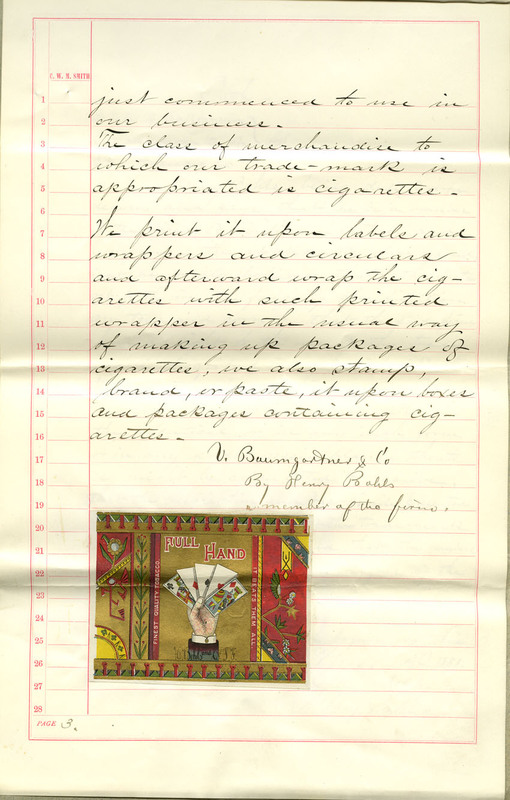 C. W. M. SMITH
1 just commenced to use in
2 our business.
3 The class of merchandise to
4 which our trade-mark is
5 appropriated is cigarettes.
6
7 We print it upon labels and
8 wrappers and circulars
9 and afterward wrap the cig-
10 arettes with such printed
11 wrapper in the usual way
12 of making up packages of
13 cigarettes, we also stamp,
14 brand, or paste, it upon boxes
15 and packages containing cig-
16 arettes.
17 V. Baumgardner & Co
18 By Henry Bohls
19 a member of the firm.
20
21 FULL HAND
22 FINEST QUALITY TOBACCO
23 IT BEATS THEM ALL
24
25
26
27
28
PAGE 3.